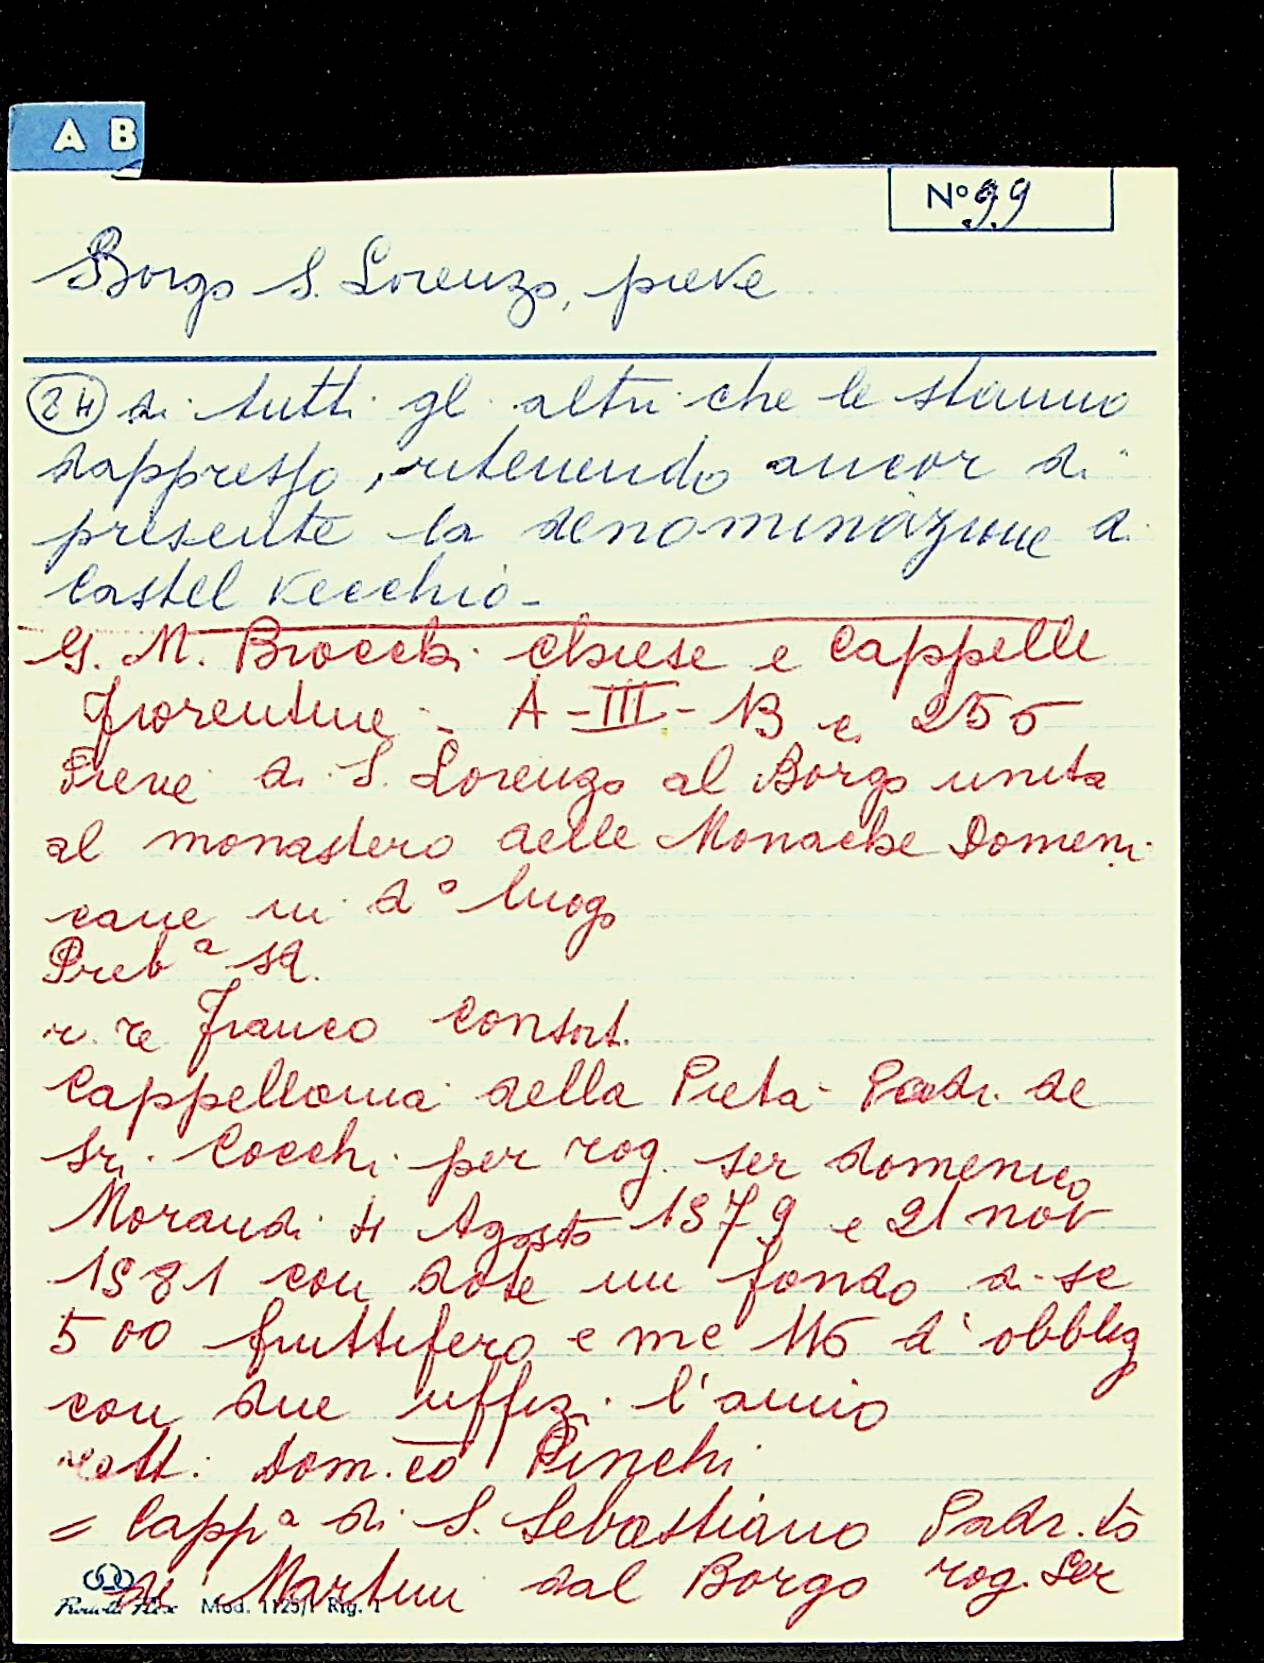 A B
N° 99
Borgo S. Lorenzo, pieve
(24) di tutti gl altri che le stanno
dappresso, ritenendo ancor di
presente la denominazione di
Castel Vecchio -
G. M. Brocchi Chiese e Cappelle
fiorentine - A - III - 13 c. 255
Pieve di S. Lorenzo al Borgo unita
al monastero delle Monache Domeni
cane in d° luogo
Preb a
franco consort.
Cappellania della Pietà - Padr. de
Sri. Cocchi per rog. ser domenico
Morandi 4 Agosto 1579 e 21 nov
1581 con dote un fondo di sc
500 fruttifero e me 116 d'obblig
con due uffizi l'anno
rett. Dom.co Pinchi
= Capp a di S. Sebastiano Padr.to
de Martini dal Borgo rog. Ser
Mod. 1125/1 Rig. 1